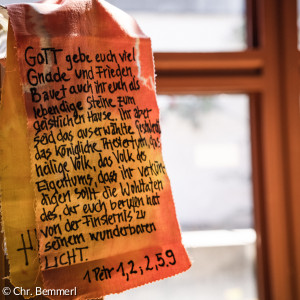 GOTT gebe euch viel
Gnade und Frieden.
Bauet auch ihr euch als
lebendige Steine zum
geistlichen Hause. Ihr aber
seid das auserwählte
das königliche Priestertum, das
heilige Volk, das Volk des
Eigentums, dass ihr verkün-
digen sollt die Wohltaten
des, der euch berufen hat
von der Finsternis zu
seinem wunderbaren
LICHT.
1 Petr 1,2,2,5.9
H
© Chr. Bemmerl